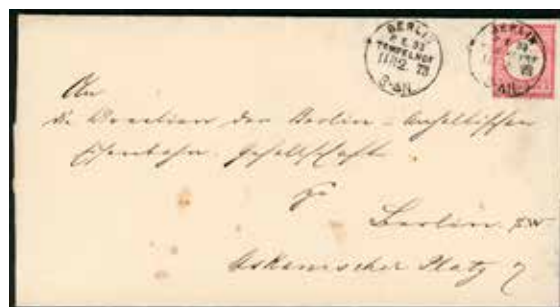 BERLIN
P. E. 33
TEMPELHOF
11 12 73
8-9 N.
BERLIN
P. E. 33
73
An
die Direction der Berlin-Anhaltischen
Eisenbahn-Gesellschaft
zu
Berlin. SW
Askanischer Platz